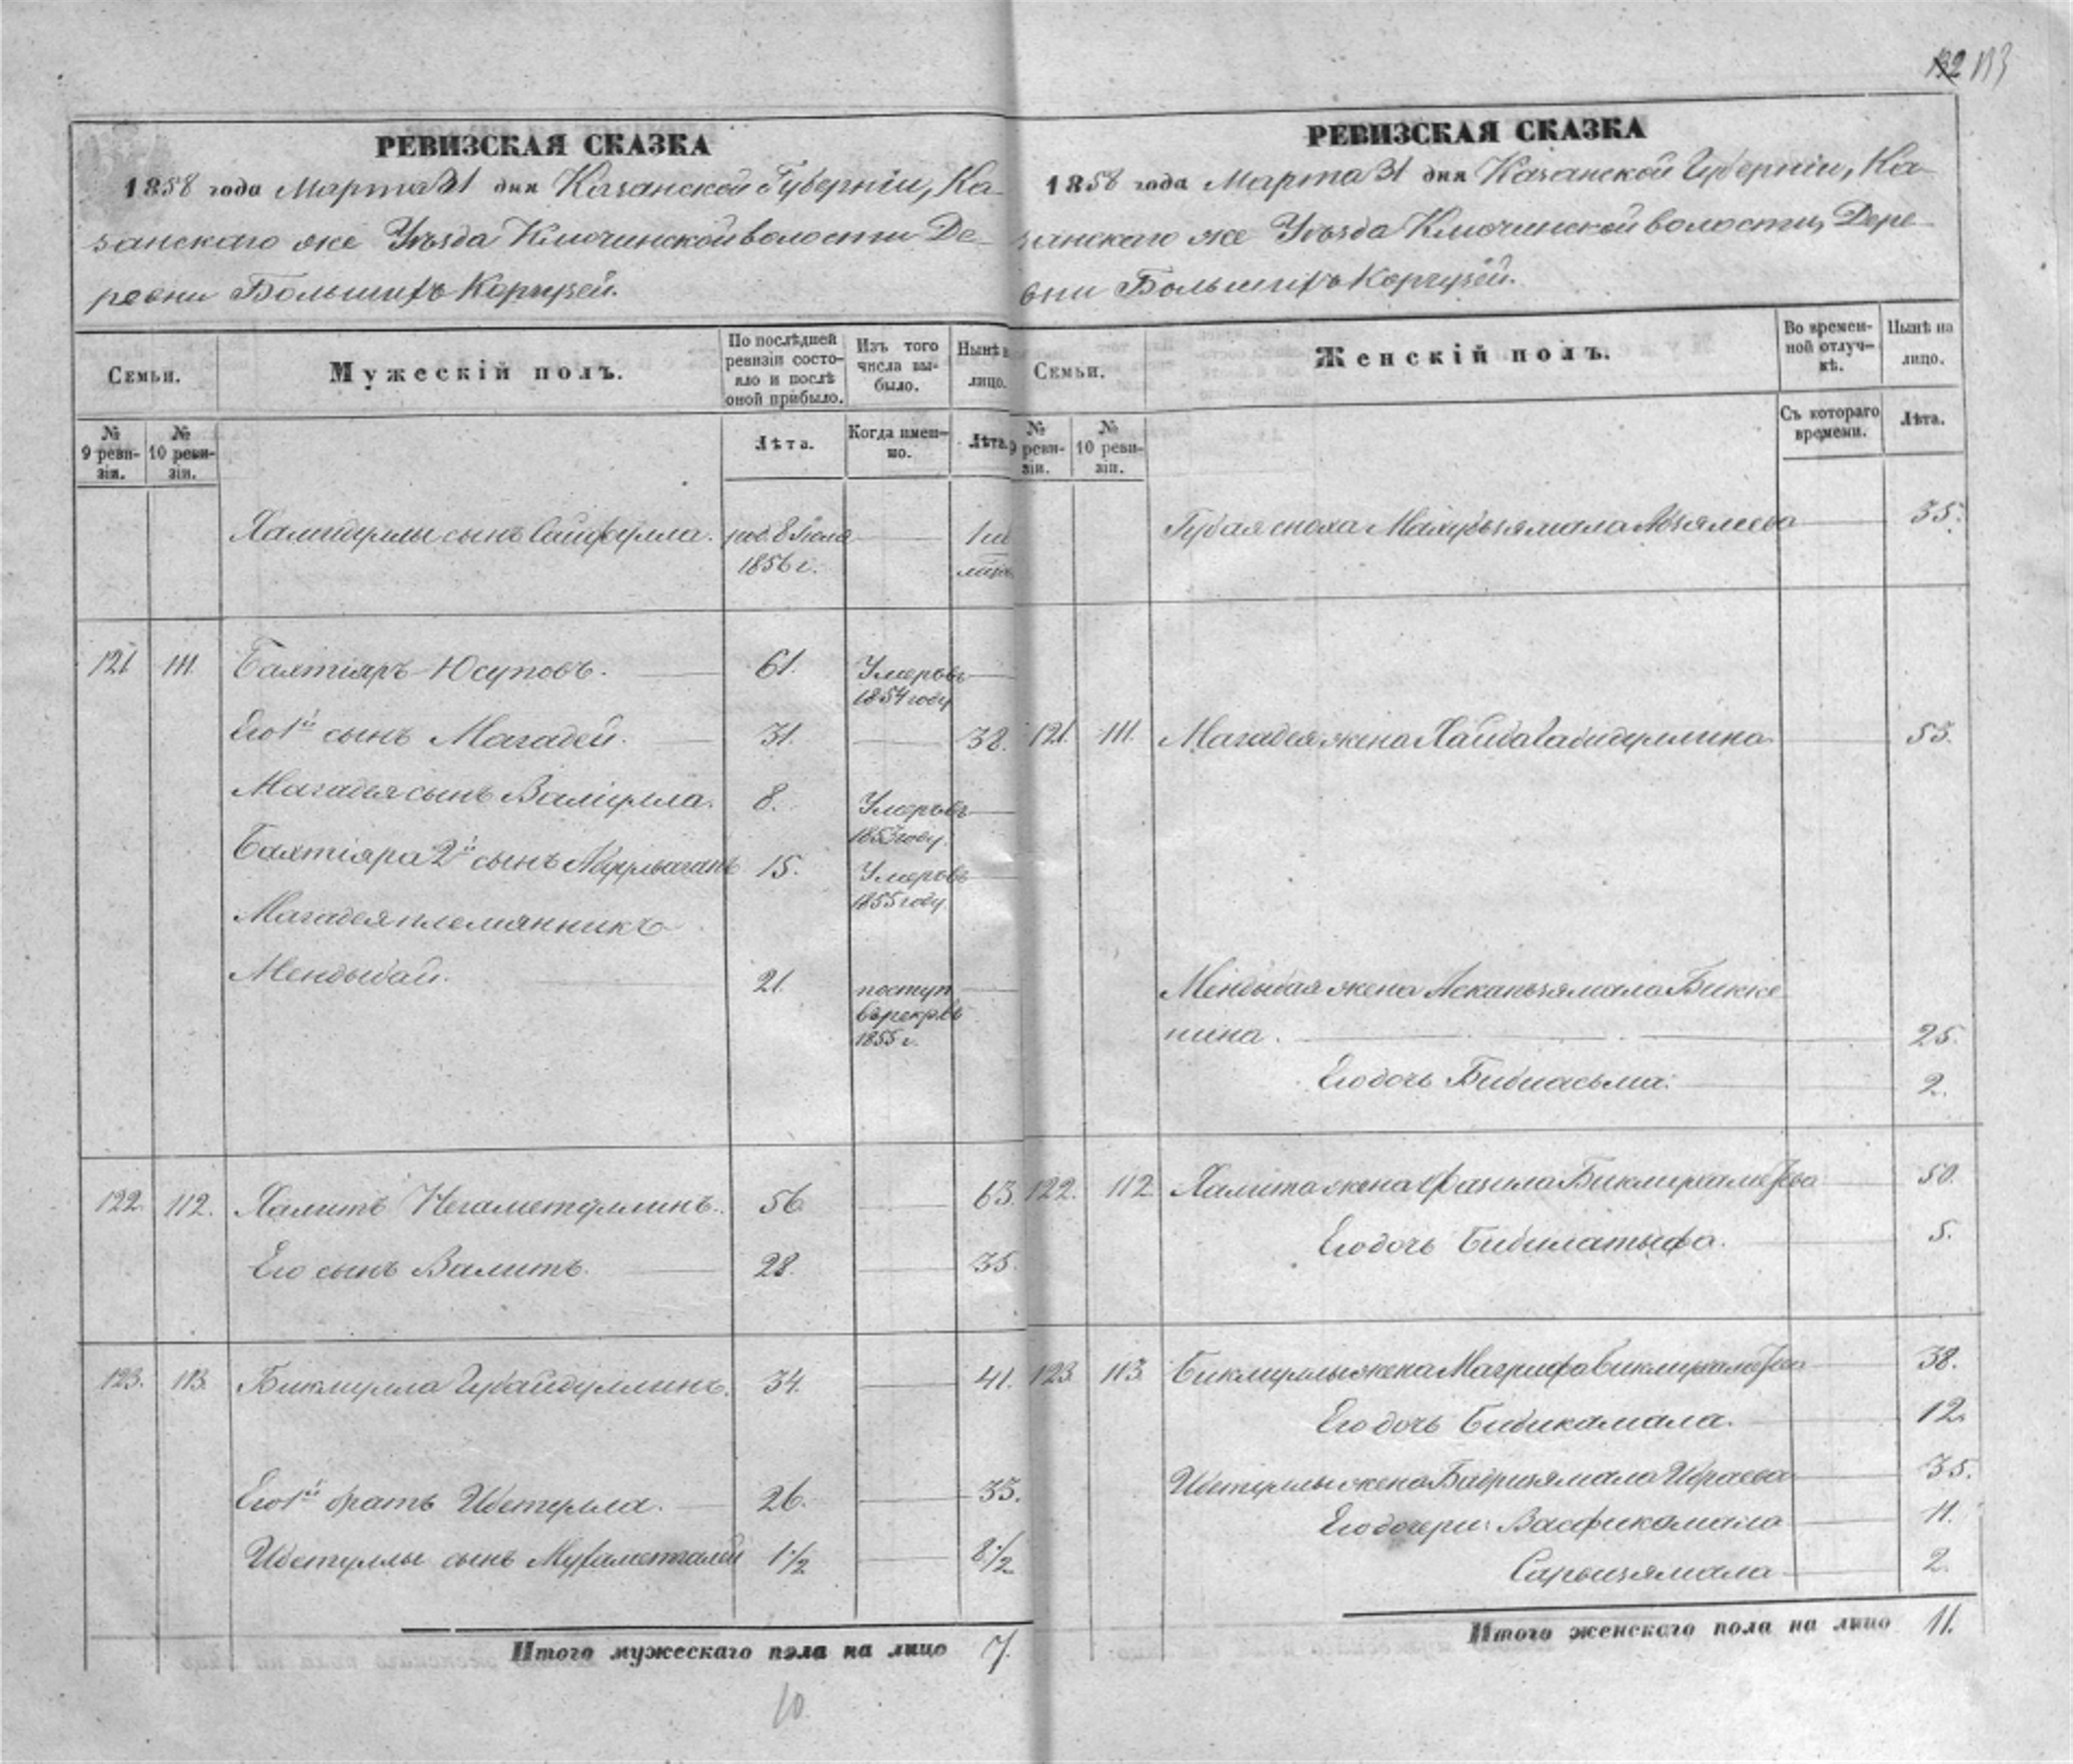 132 113
РЕВИЗСКАЯ СКАЗКА
1858 года Марта 31 дня Казанской Губерніи, Ка-
занскаго же Уѣзда Ключинской волости Де-
ревни Большихъ Коргузей.
Семьи.
Мужескій полъ.
По послѣдней ревизіи состояло и послѣ оной прибыло.
Изъ того числа выбыло.
Нынѣ на лицо.
№ 9 ревизіи.
№ 10 ревизіи.
Лѣта.
Когда именно.
Лѣта.
Халидуллы сынъ Сайфулла. род. 8 Іюля
1856 г.
121 111. Бахтіяръ Юсуповъ. 61. Умеръ въ
1854 году
Его 1й сынъ Магадей. 31. 38.
Магадея сынъ Валіулла. 8. Умеръ въ
1853 году.
Бахтіяра 2й сынъ 15. Умеръ въ
1855 году
Магадея племянникъ
Мендыбай. 21 поступ.
въ рекр. въ
1855 г.
122. 112. Халитъ Негаметуллинъ. 56 63.
Его сынъ Валитъ. 28. 35.
123. 113. Бикмулла Губайдуллинъ. 34. 41.
Его 1й братъ Ибетулла. 26. 33.
Ибетуллы сынъ Мухаметгалей 1 1/2 8 1/2
Итого мужескаго пола на лицо 7.
10
РЕВИЗСКАЯ СКАЗКА
1858 года Марта 31 дня Казанской Губерніи, Ка-
занскаго же Уѣзда Ключинской волости, Дере-
вни Большихъ Коргузей.
Семьи.
Женскій полъ.
Во временной отлучкѣ.
Нынѣ на лицо.
№ 9 ревизіи.
№ 10 ревизіи.
Съ котораго времени.
Лѣта.
сноха 35.
121. 111. Магадея жена Хаиба Габидуллина 53.
Мендыбая жена Бикке-
нина. 25.
Его дочь Бибиасьма. 2.
122. 112 Халита жена Фазила Бикмухаметева 50.
Его дочь Бибилатыфа. 5.
123. 113. Бикмуллы жена Магруфа Бикмухаметева 38.
Его дочь Бибикамала. 12.
Ибетуллы жена Бадризямала Ибраева 35.
Его дочери: Васфикамала 11.
Сарызямала 2.
Итого женскаго пола на лицо 11.